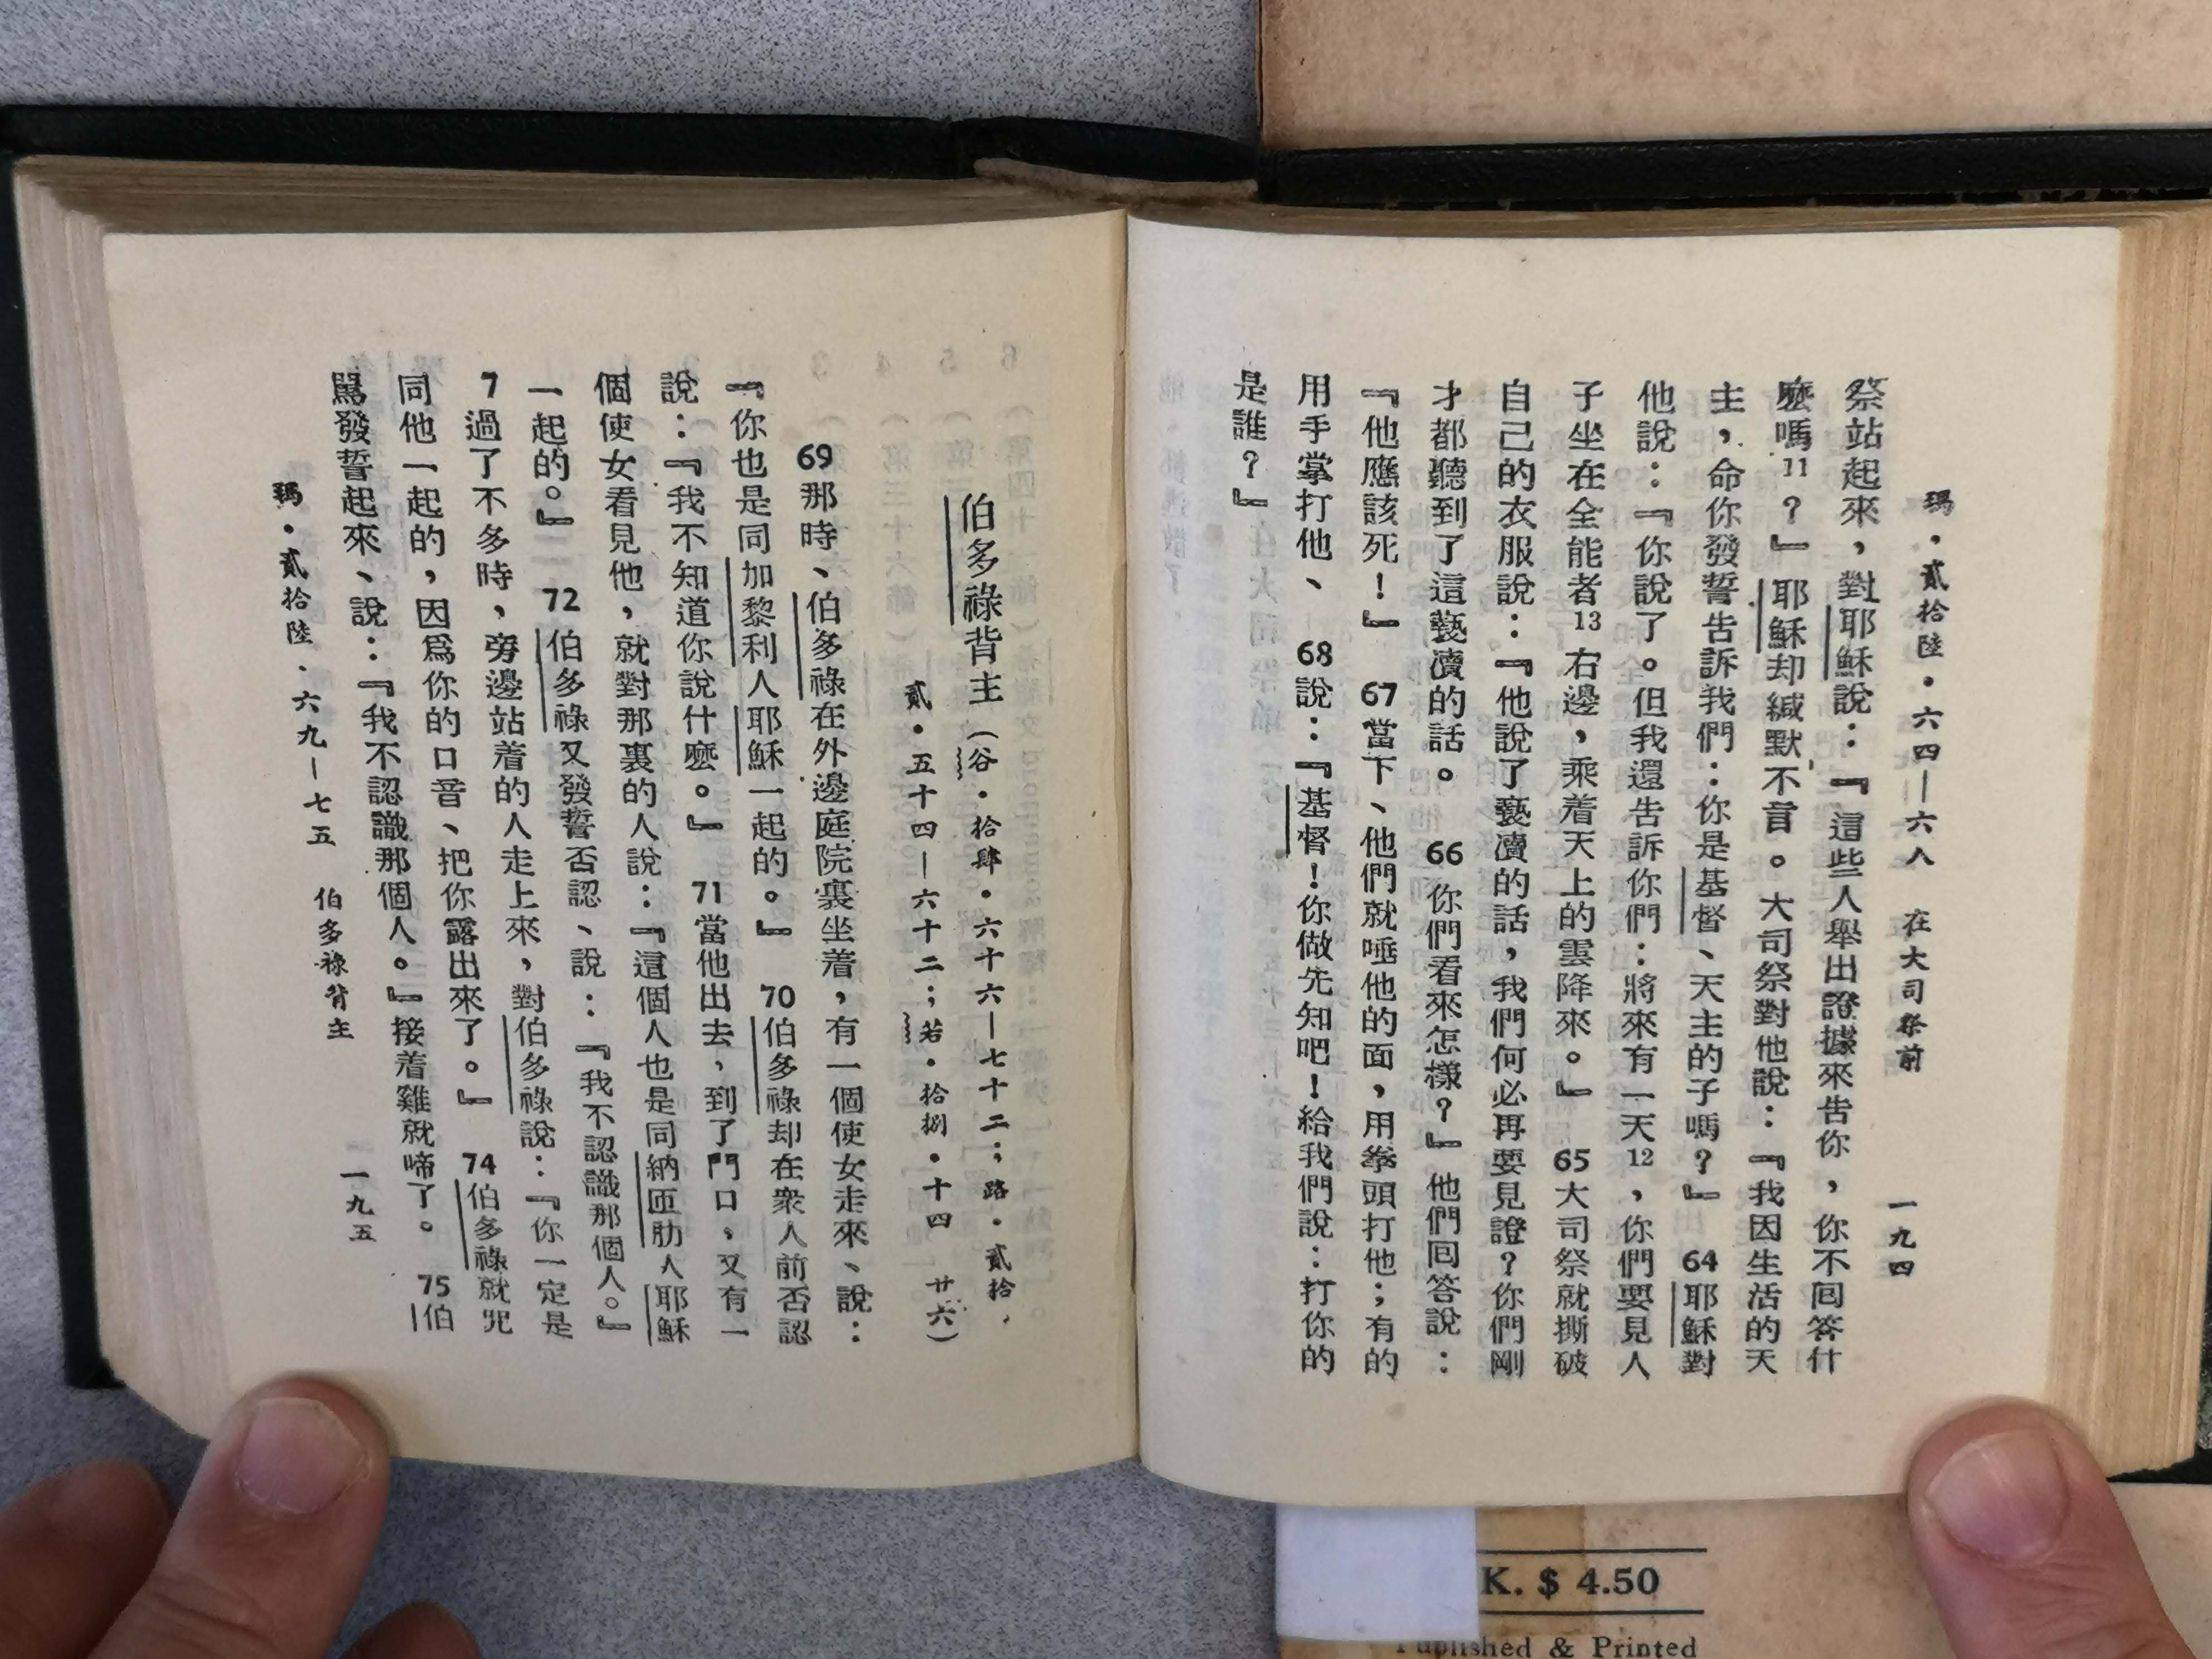 瑪．貳拾陸．六四—六八　在大司祭前　一九四
祭站起來，對耶穌說：『這些人舉出證據來告你，你不囘答什
麼嗎11？』耶穌却緘默不言。大司祭對他說：『我因生活的天
主，命你發誓告訴我們：你是基督、天主的子嗎？』64耶穌對
他說：『你說了。但我還告訴你們：將來有一天12，你們要見人
子坐在全能者13右邊，乘着天上的雲降來。』65大司祭就撕破
自己的衣服說：『他說了褻瀆的話，我們何必再要見證？你們剛
才都聽到了這褻瀆的話。66你們看來怎樣？』他們囘答說：
『他應該死！』67當下、他們就唾他的面，用拳頭打他；有的
用手掌打他、68說：『基督！你做先知吧！給我們說：打你的
是誰？』
伯多祿背主（谷．拾肆．六十六—七十二；路．貳拾．
貳．五十四—六十二；若．拾捌．十四　廿六）
69那時、伯多祿在外邊庭院裏坐着，有一個使女走來、說：
『你也是同加黎利人耶穌一起的。』70伯多祿却在衆人前否認
說：『我不知道你說什麼。』71當他出去，到了門口，又有一
個使女看見他，就對那裏的人說：『這個人也是同納匝肋人耶穌
一起的。』72伯多祿又發誓否認、說：『我不認識那個人。』
7過了不多時，旁邊站着的人走上來，對伯多祿說：『你一定是
同他一起的，因爲你的口音、把你露出來了。』74伯多祿就咒
駡發誓起來、說：『我不認識那個人。』接着雞就啼了。75伯
瑪．貳拾陸．六九—七五　伯多祿背主　一九五
K. $ 4.50
Published & Printed